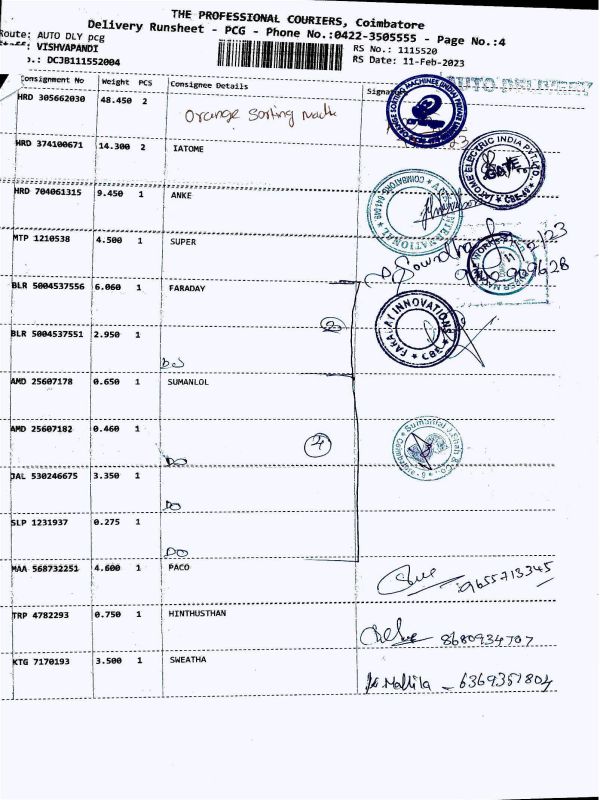 THE PROFESSIONAL COURIERS, Coimbatore
Delivery Runsheet - PCG - Phone No.:0422-3505555 - Page No.:4
Route: AUTO DLY pcg
VISHVAPANDI
RS No.: 1115520
.: DCJB111552004
RS Date: 11-Feb-2023
Consignment No Weight PCS Consignee Details Signat
AUTO DELIVERY
HRD 305662030 48.450 2 Orange Sorting
HRD 374100671 14.300 2 IATOME
IATOME ELECTRIC INDIA PVT LTD
HRD 704061315 9.450 1 ANKE
COIMBATORE
MTP 1210538 4.500 1 SUPER
BLR 5004537556 6.060 1 FARADAY
2
FARADAY INNOVATIONS
* CBE *
BLR 5004537551 2.950 1
DO
AMD 25607178 0.650 1 SUMANLOL
AMD 25607182 0.460 1
4
Sumanlal J. Shah & Co.
DO
JAL 530246675 3.350 1
DO
SLP 1231937 0.275 1
DO
MAA 568732251 4.600 1 PACO
9655713345
TRP 4782293 0.750 1 HINTHUSTHAN
8680934707
KTG 7170193 3.500 1 SWEATHA